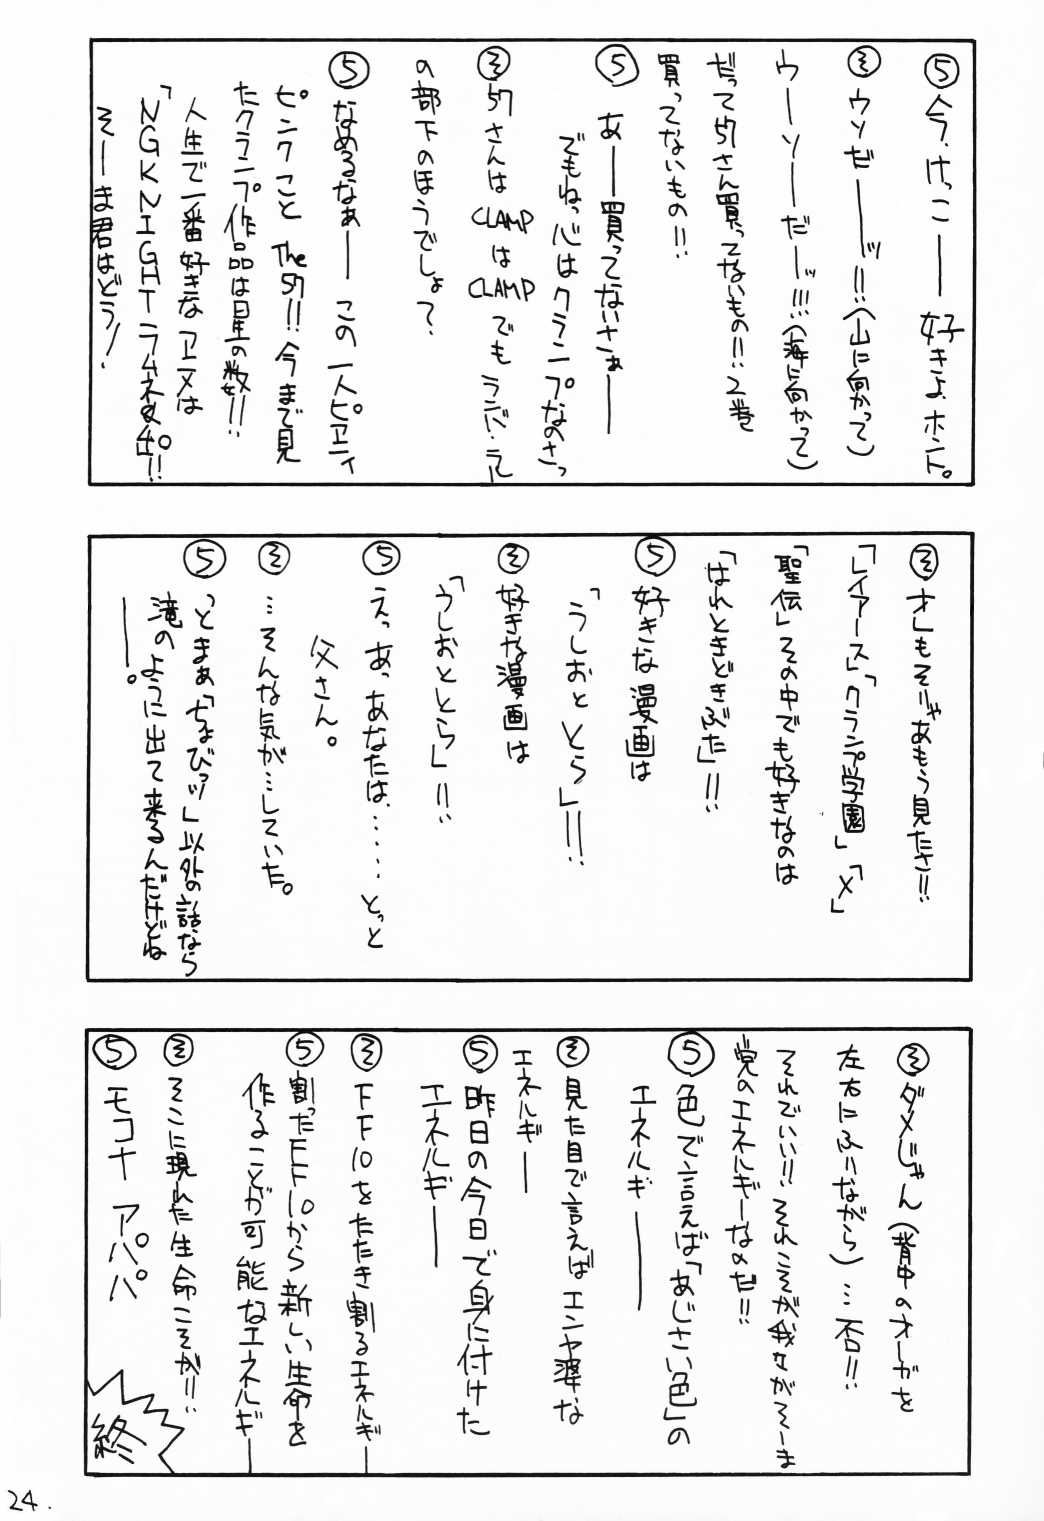 ⑤今、けっこ――好きよ、ホント。
㋞ウソゼ――ッ!!(山に向かって)
ウーソーだーッ!!!(海に向かって)
だって57さん買ってないもの!!2巻
買ってないもの!!
⑤あ――買ってないさぁ――
でもねっ心はクランプなのさっ
㋞57さんはCLAMPはCLAMPでもランバ・ラル
の部下のほうでしょ?
⑤なめるなぁ――この一人ピエニィ
ピンクことThe57!!今まで見
たクランプ作品は星の数!!
人生で一番好きなアニメは
「NGKNIGHTラムネ&40!!
そーま君はどう!
㋞オレもそりゃあもう見たさ!!
「レイアース」「クランプ学園」「X」
「聖伝」その中でも好きなのは
「はれときどきぶた」!!
⑤好きな漫画は
「うしおととら」!!!
㋞好きな漫画は
「うしおととら」!!
⑤えっあっあなたは、……とっと
父さん。
㋞…そんな気が…していた。
⑤っとまぁ「ちょびッツ」以外の話なら
滝のように出て来るんだけどね
――。
㋞ダメじゃん(背中のオーガを
左右にふりながら)…否!!
それでいい!!それこそが我ながそーま
党のエネルギーなのだ!!
⑤色で言えば「あじさい色」の
エネルギ――
㋞見た目で言えばエンヤ婆な
エネルギー
⑤昨日の今日で身に付けた
エネルギ――
㋞FF10をたたき割るエネルギ――
⑤割ったFF10から新しい生命を
作ることが可能なエネルギ――
㋞そこに現れた生命こそが!!
⑤モコナ アパパ
終
24.